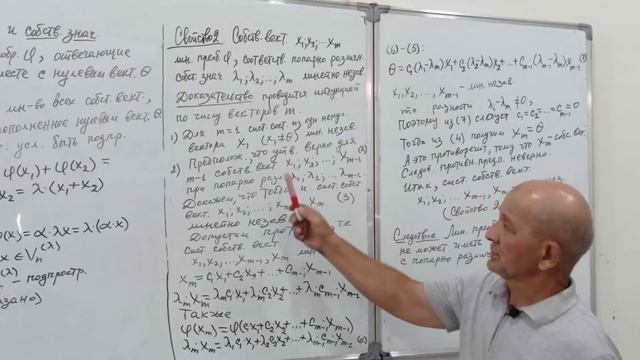 и собств. знач.
обр. φ, отвечающие
вместе с нулевым вект. θ
мн-во всех собст. вект.,
нулевым вект.
усл. быть подпр.
φ(x₁)+φ(x₂)=
x₂=λ·(x₁+x₂)
φ(x)=α·λx=λ·(α·x)
x∈Vₙ^(λ)
- подпростр.
Свойство 2. Собств. вект. x₁,x₂,...xₘ
лин. преоб. φ, соответств. попарно различн.
собст. знач λ₁,λ₂,...,λₘ линейно незав.
Доказательство проводится индукцией
по числу векторов m.
1) Для m=1 сист. сост. из одн. ненул.
вектора x₁ (x₁≠θ) лин. незав.
2) Предполож., что утв. верно для
m-1 собств. вект. x₁,x₂,...,xₘ₋₁ (2)
при попарно разл. λ₁,λ₂,...λₘ₋₁.
Докажем, что тогда и сист. собст.
вект. x₁,x₂,...,xₘ (3)
линейно незав.
Допустим
сист. собств. вект.
x₁,x₂,...,xₘ₋₁,xₘ
xₘ=c₁x₁+c₂x₂+...+cₘ₋₁xₘ₋₁
λₘxₘ=λₘc₁x₁+λₘc₂x₂+...+λₘcₘ₋₁xₘ₋₁
Также
φ(xₘ)=φ(c₁x₁+c₂x₂+...+cₘ₋₁xₘ₋₁)
λₘxₘ=λ₁c₁x₁+λ₂c₂x₂+...+λₘ₋₁cₘ₋₁xₘ₋₁ (6)
(6)-(5):
θ=c₁(λ₁-λₘ)x₁+c₂(λ₂-λₘ)x₂+...+cₘ₋₁(λₘ₋₁-λₘ)xₘ₋₁ (7)
x₁,x₂,...,xₘ₋₁ - лин. незав.
то разности λᵢ-λₘ≠0,
Поэтому из (7) следует c₁=c₂=...=cₘ₋₁=0
Тогда из (4) получим xₘ=θ
А это противоречит, тому что xₘ - собс век.
Следов. против. предп. неверно.
Итак, сист. собств. вект.
x₁,x₂,...,xₘ₋₁,xₘ
(Свойство
Следствие Лин. пр
не может иметь
с попарно различ